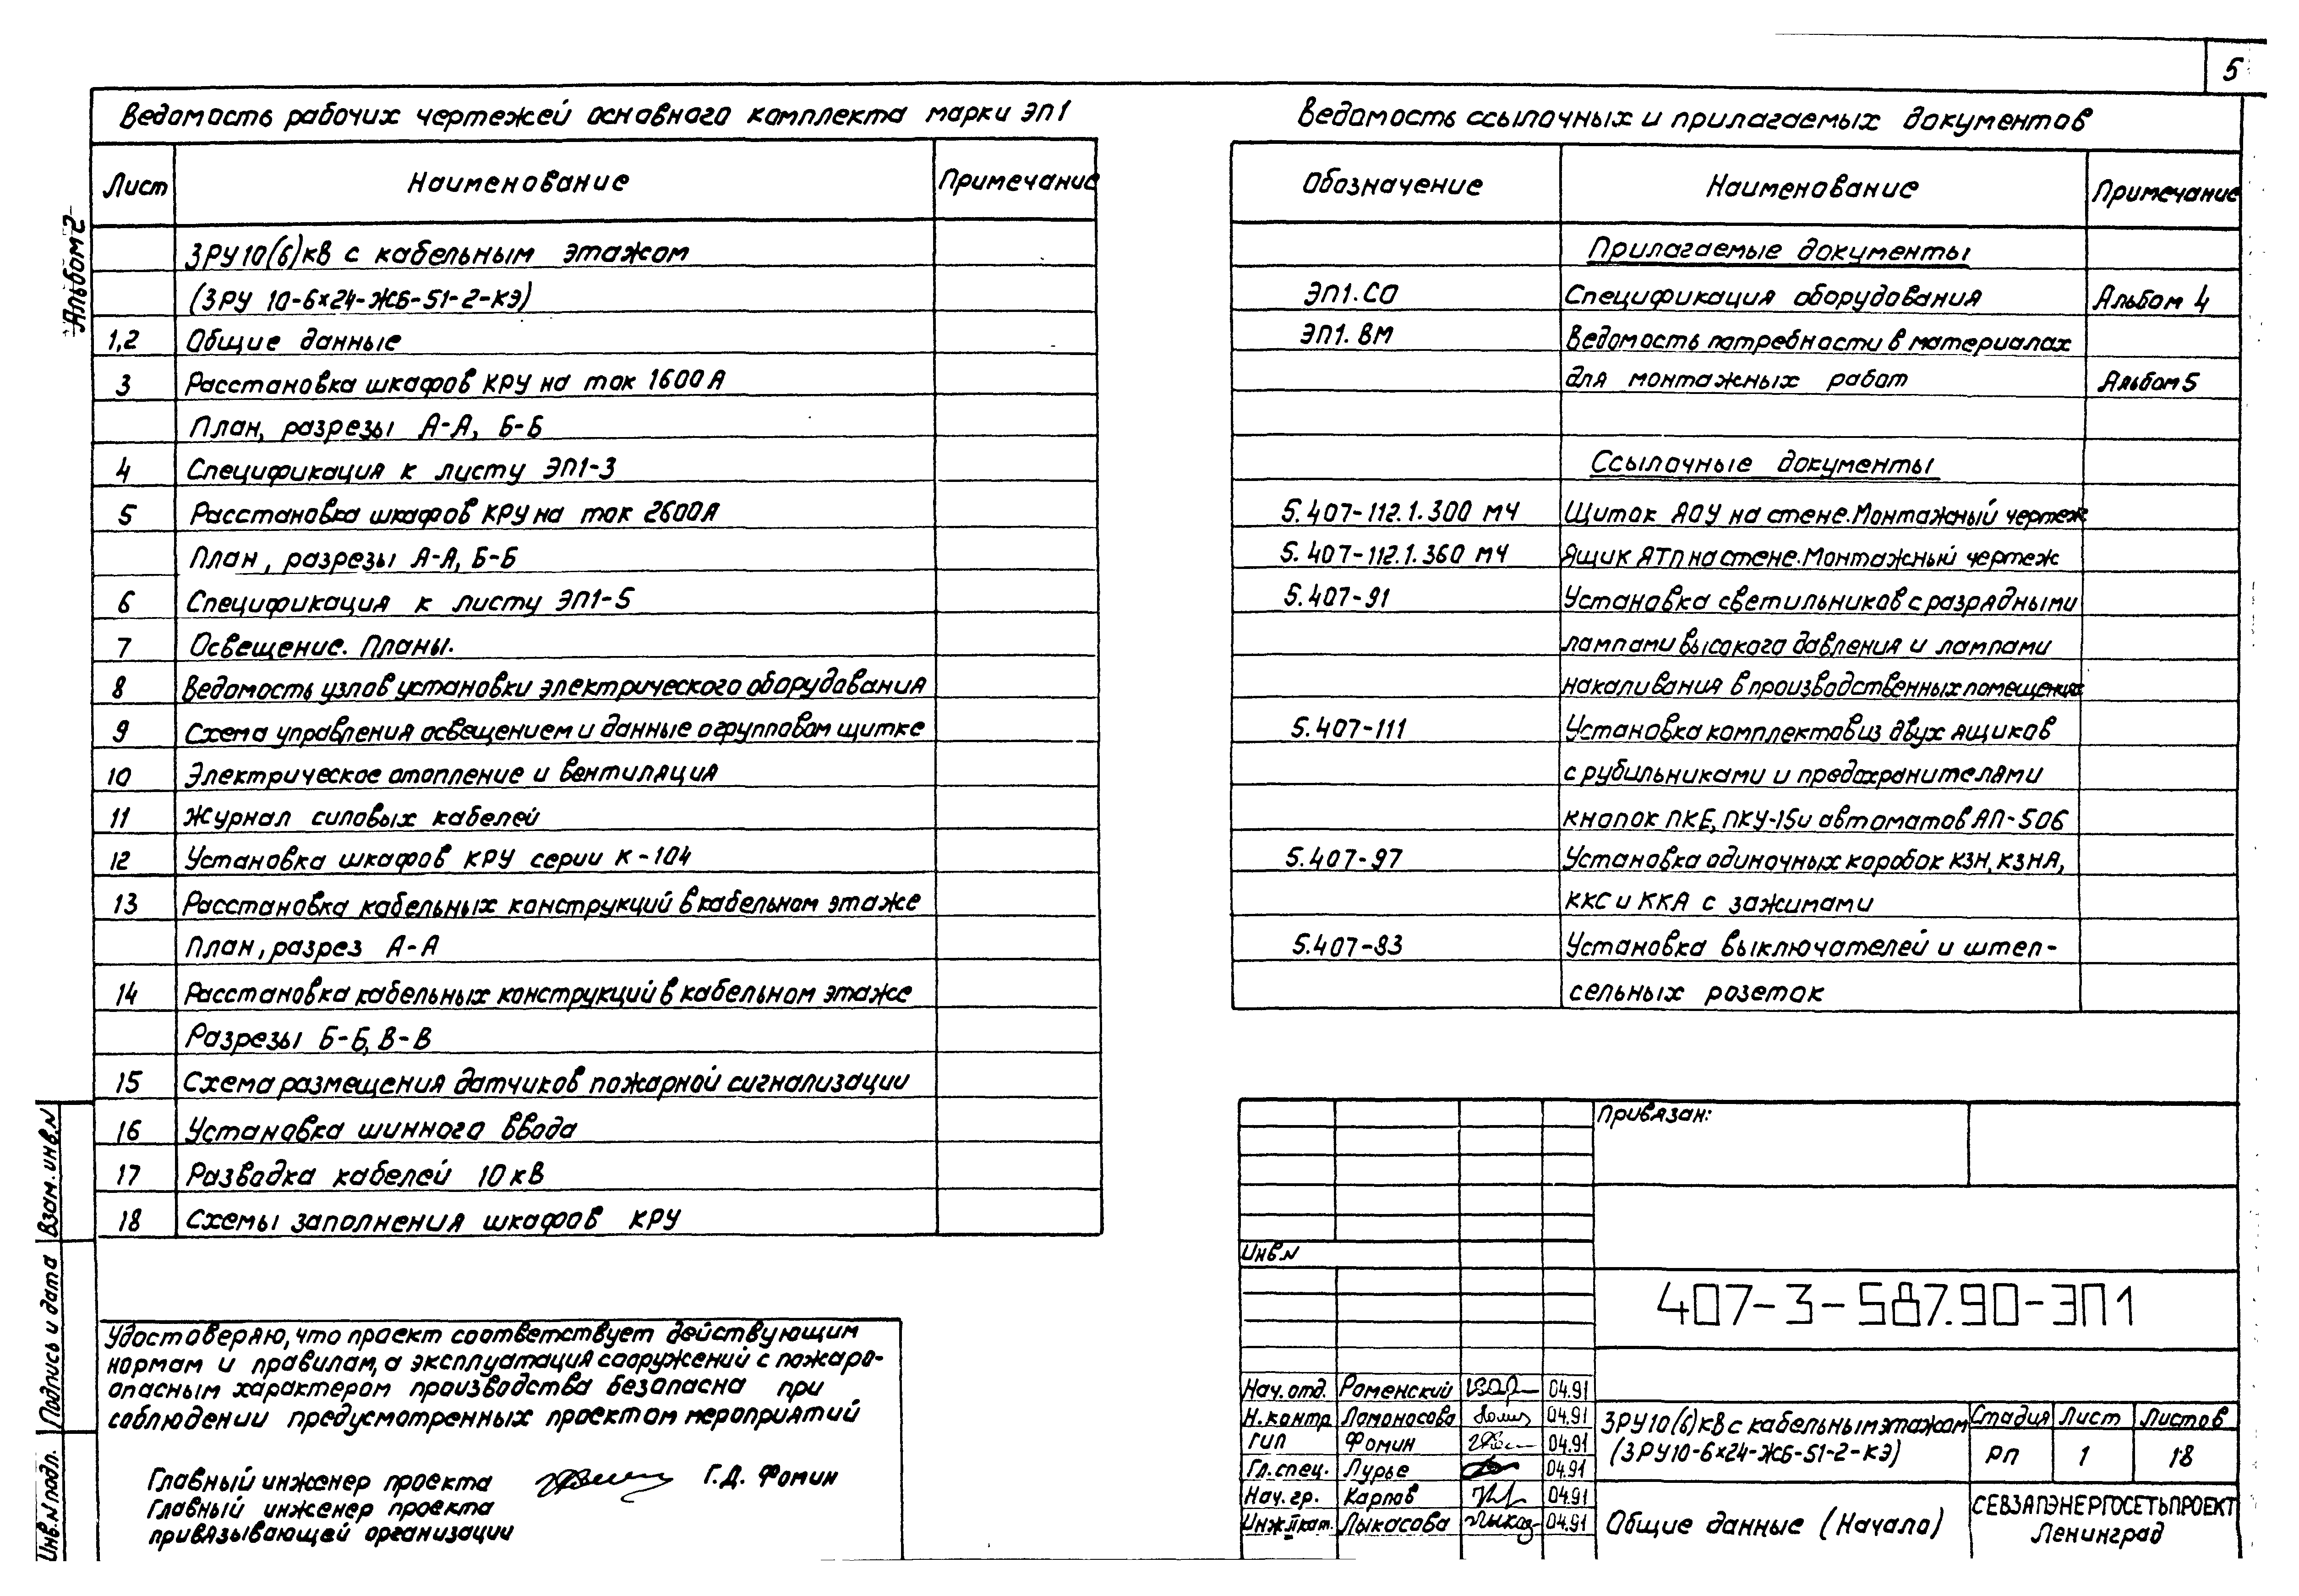 5
Альбом 2
Ведомость рабочих чертежей основного комплекта марки ЭП1
Лист Наименование Примечание
ЗРУ10(6)кВ с кабельным этажом
(ЗРУ 10-6х24-ЖБ-51-2-КЭ)
1,2 Общие данные
3 Расстановка шкафов КРУ на ток 1600А
План, разрезы А-А, Б-Б
4 Спецификация к листу ЭП1-3
5 Расстановка шкафов КРУ на ток 2600А
План, разрезы А-А, Б-Б
6 Спецификация к листу ЭП1-5
7 Освещение. Планы.
8 Ведомость узлов установки электрического оборудования
9 Схема управления освещением и данные о групповом щитке
10 Электрическое отопление и вентиляция
11 Журнал силовых кабелей
12 Установка шкафов КРУ серии К-104
13 Расстановка кабельных конструкций в кабельном этаже
План, разрез А-А
14 Расстановка кабельных конструкций в кабельном этаже
Разрезы Б-Б, В-В
15 Схема размещения датчиков пожарной сигнализации
16 Установка шинного ввода
17 Разводка кабелей 10кВ
18 Схемы заполнения шкафов КРУ
Ведомость ссылочных и прилагаемых документов
Обозначение Наименование Примечание
Прилагаемые документы
ЭП1.СО Спецификация оборудования Альбом 4
ЭП1.ВМ Ведомость потребности в материалах
для монтажных работ Альбом 5
Ссылочные документы
5.407-112.1.300 МЧ Щиток ЯОУ на стене. Монтажный чертеж
5.407-112.1.360 МЧ Ящик ЯТП на стене. Монтажный чертеж
5.407-91 Установка светильников с разрядными
лампами высокого давления и лампами
накаливания в производственных помещениях
5.407-111 Установка комплектов из двух ящиков
с рубильниками и предохранителями
кнопок ПКЕ, ПКУ-15 и автоматов АП-50Б
5.407-97 Установка одиночных коробок КЗН, КЗНА,
ККС и ККА с зажимами
5.407-83 Установка выключателей и штеп-
сельных розеток
Удостоверяю, что проект соответствует действующим
нормам и правилам, а эксплуатация сооружений с пожаро-
опасным характером производства безопасна при
соблюдении предусмотренных проектом мероприятий
Главный инженер проекта Г.Д. Фомин
Главный инженер проекта
привязывающей организации
Взам. инв.N
Подпись и дата
Инв.N подл.
Привязан:
Инв.N
407-3-587.90-ЭП1
Нач.отд. Роменский 04.91
Н.контр Ломоносова 04.91
ГИП Фомин 04.91
Гл.спец. Лурье 04.91
Нач.гр. Карпов 04.91
Инж.II кат. Лыкасова 04.91
ЗРУ10(6)кВ с кабельным этажом
(ЗРУ10-6х24-ЖБ-51-2-КЭ)
Стадия Лист Листов
РП 1 18
Общие данные (Начало)
СЕВЗАПЭНЕРГОСЕТЬПРОЕКТ
Ленинград